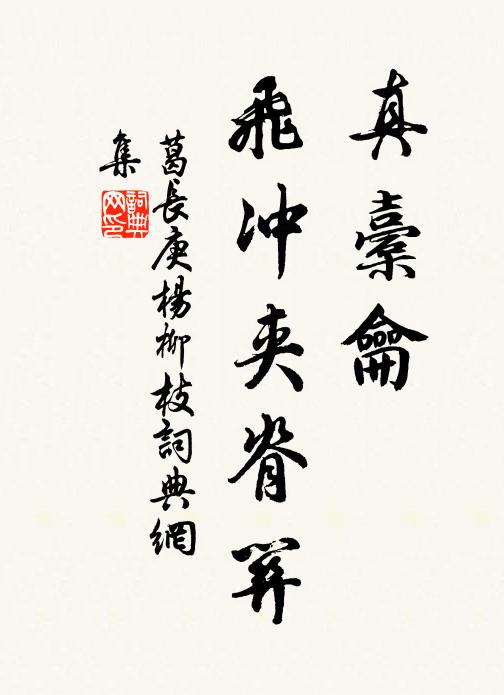 真橐龠
飛冲夾脊關
葛長庚楊柳枝詞典網
集
詞典
网印